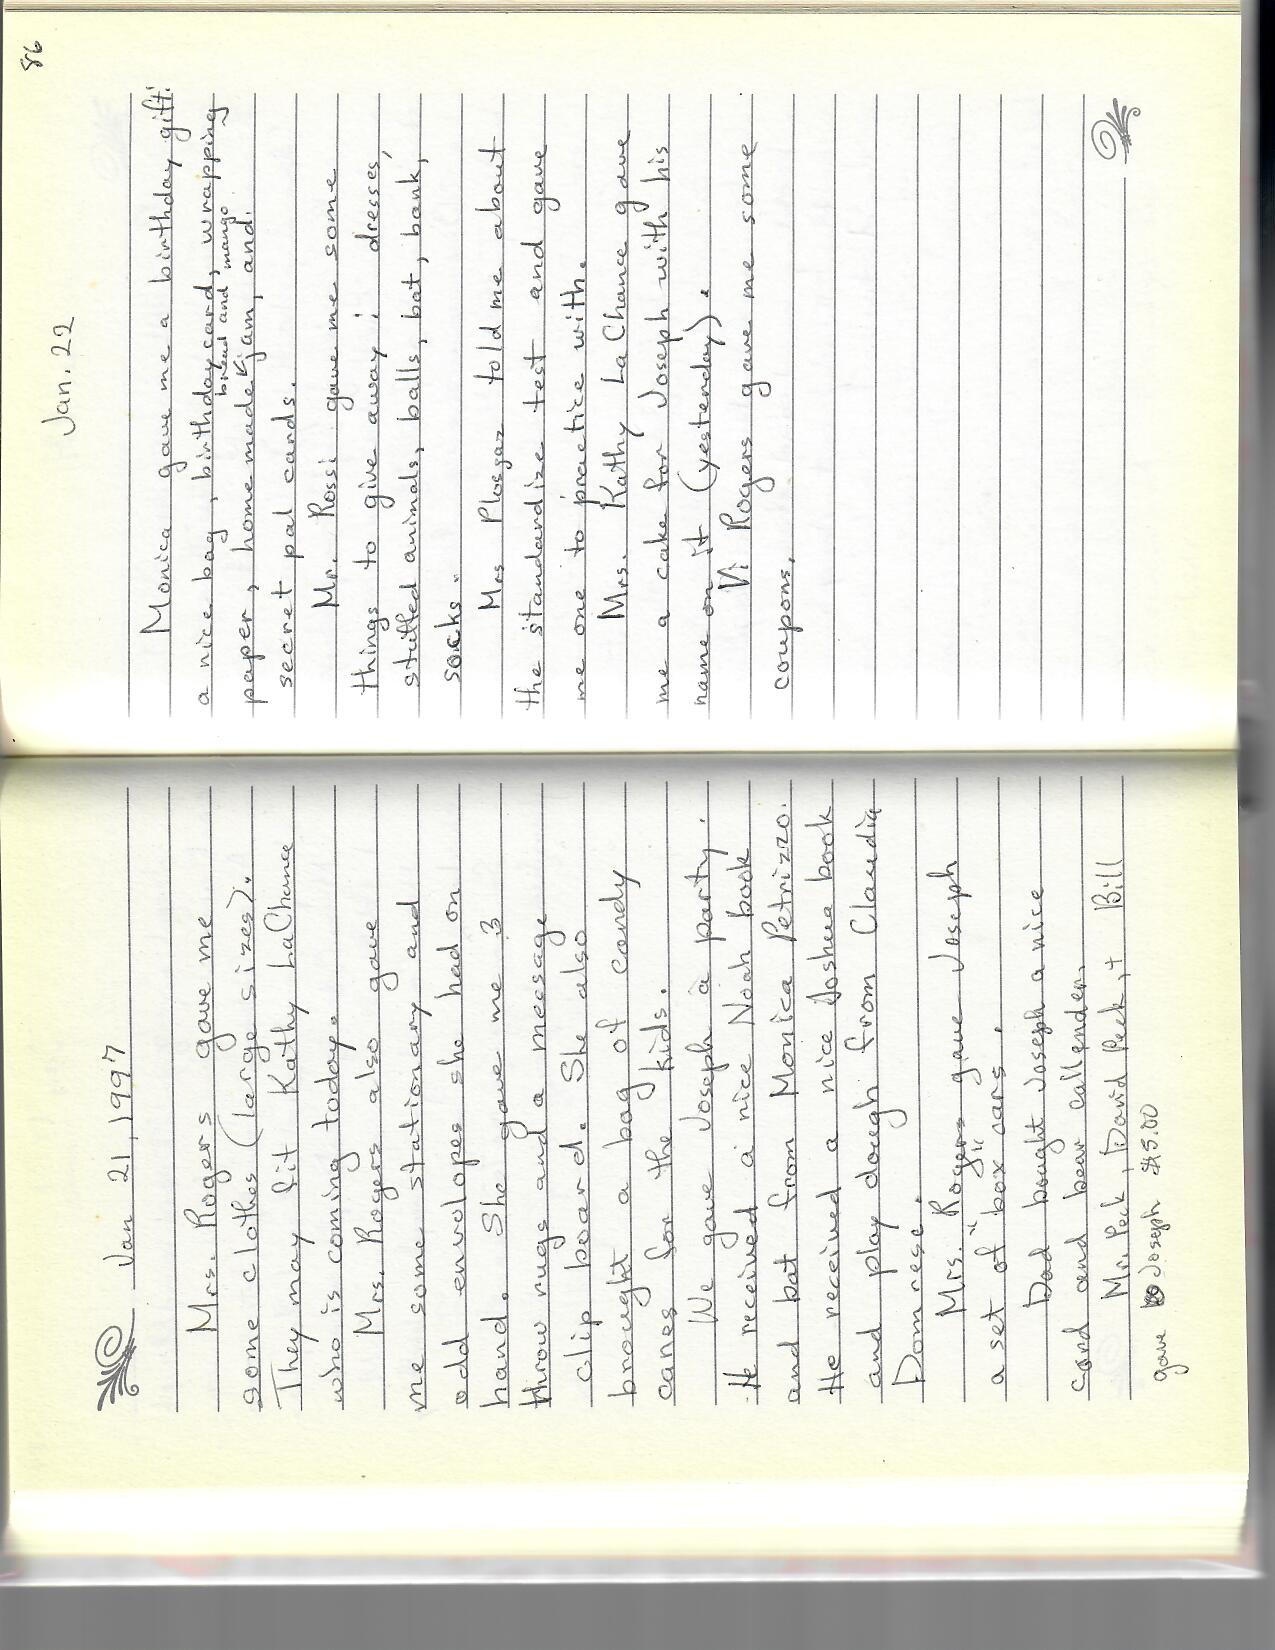 Jan 21, 1997
Mrs. Rogers gave me
some clothes (large sizes).
They may fit Kathy LaChance
who is coming today.
Mrs. Rogers also gave
me some stationary and
odd envolopes she had on
hand. She gave me 3
throw rugs and a message
clip board. She also
brought a bag of candy
canes for the kids.
We gave Joseph a party.
He received a nice Noah book
and bat from Monica Petrizzo.
He received a nice Joshua book
and play dough from Claudia
Domrese.
Mrs. Rogers gave Joseph
a set of "box cars".
Dad bought Joseph a nice
card and bear callender.
Mr. Peck, David Peck, + Bill
gave Joseph $5.00
86
Jan. 22
Monica gave me a birthday gift:
a nice bag, birthday card, wrapping
bread and mango
paper, homemade jam, and
secret pal cards.
Mr. Rossi gave me some
things to give away: dresses,
stuffed animals, balls, bat, bank,
socks.
Mrs Plosgaz told me about
the standardize test and gave
me one to practice with.
Mrs. Kathy LaChance gave
me a cake for Joseph with his
name on it (yesterday).
Vi Rogers gave me some
coupons.